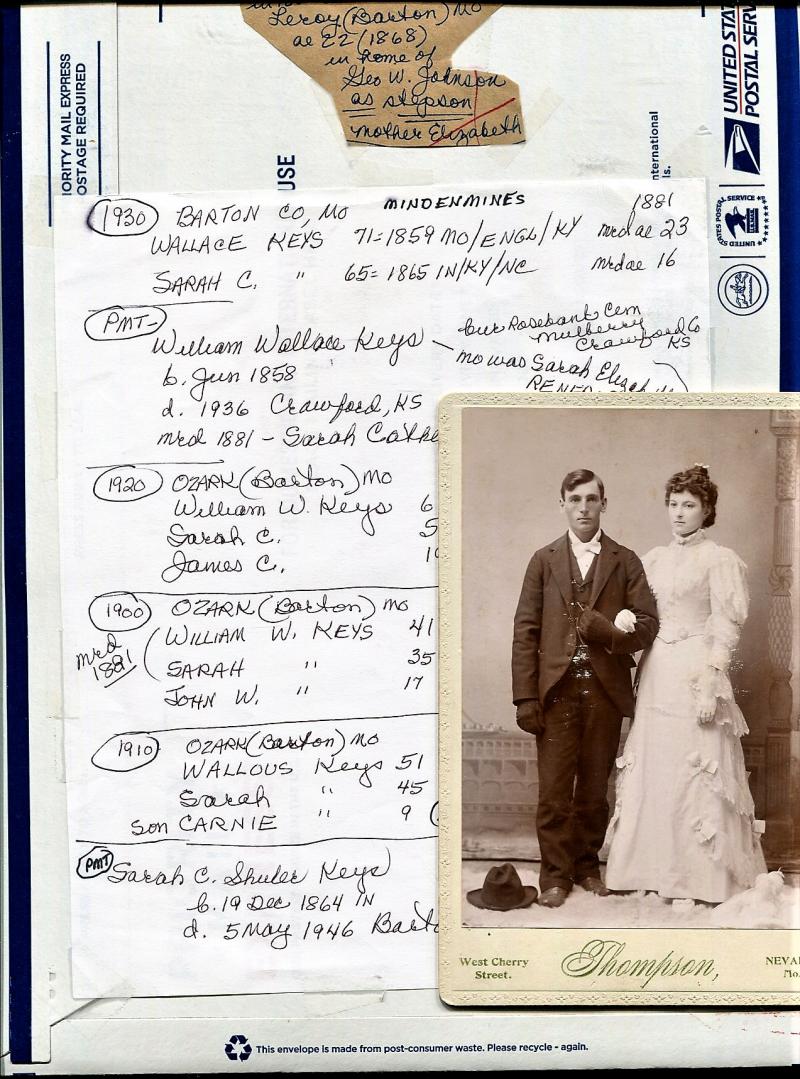 Leroy (Barton) Mo
ae 22 (1868)
in home of
Geo W. Johnson
as stepson
mother Elizabeth
IORITY MAIL EXPRESS
OSTAGE REQUIRED
USE
nternational
ls.
UNITED STA
POSTAL SERV
UNITED STATES POSTAL SERVICE
1930 BARTON CO, MO MINDENMINES 1881
WALLACE KEYS 71=1859 MO/ENGL/KY mrd ae 23
SARAH C. " 65=1865 IN/KY/NC mrd ae 16
PMT-
William Wallace Keys - bur Rosebank Cem
Mulberry
Crawford Co
KS
b. Jun 1858
mo was Sarah Elizab
d. 1936 Crawford, KS
mrd 1881 - Sarah Cathe
1920 OZARK (Barton) MO
William W. Keys 6
Sarah C. 5
James C. 1
1900 OZARK (Barton) MO
mrd 1881
WILLIAM W. KEYS 41
SARAH " 35
JOHN W. " 17
1910 OZARK (Barton) MO
WALLOUS Keys 51
Sarah " 45
son CARNIE " 9
PMT Sarah C. Shuler Keys
b. 19 Dec 1864 IN
d. 5 May 1946 Bart
West Cherry
Street.
Thompson,
NEVA
Mo.
This envelope is made from post-consumer waste. Please recycle - again.